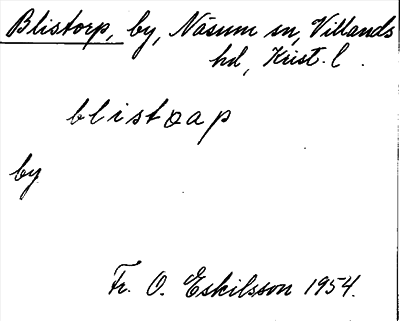 Blistorp, by, Näsum sn, Villands
hd, Krist. l.
blistoap
by
Fr. O. Eskilsson 1954.